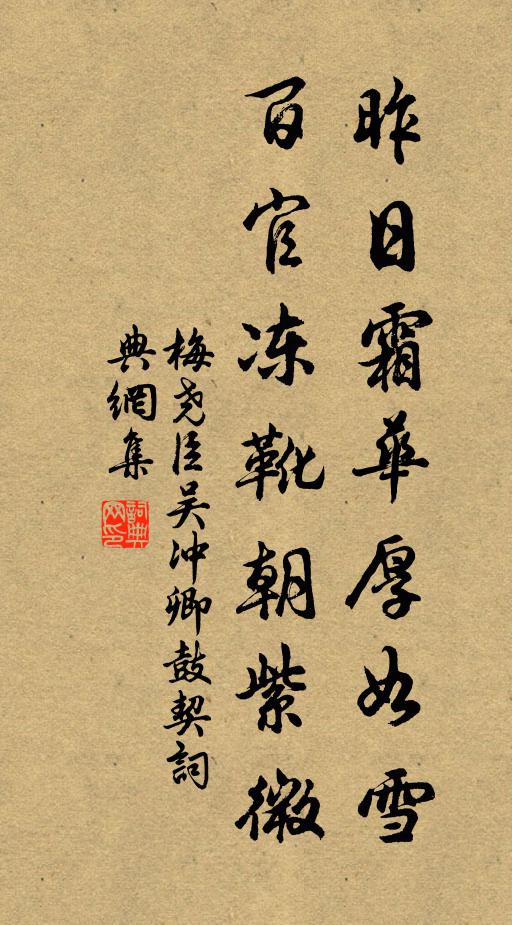 昨日霜華厚如雪
百官冻靴朝紫微
梅尧臣吴冲卿鼓契詞
典網集
詞典网印